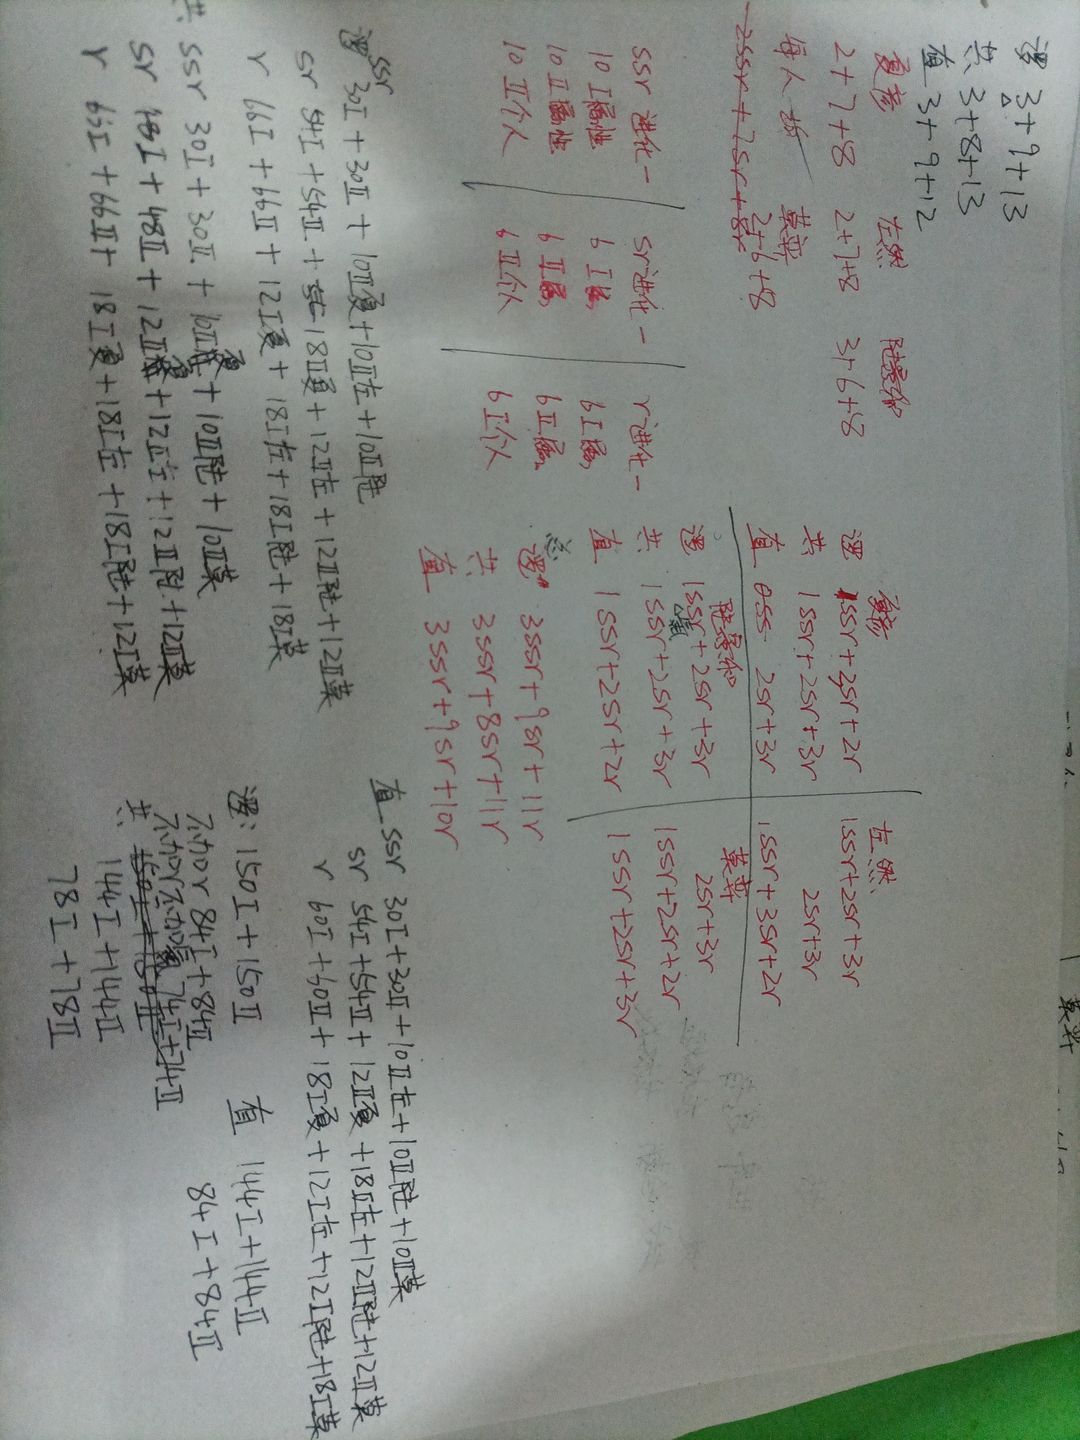 逻 3+9+13
共 3+8+13
直 3+9+12
夏彦 左然 陆景和
2+7+8 2+7+8 3+6+8
每人 莫弈
2+6+8
2ssr+7sr+8r
ssr 进化一
10 I 属性
10 II 属性
10 II 个人
sr进化一
6 I 属
6 II 属
6 II 个人
r进化一
6 I 属
6 II 属
6 I 个人
夏彦
逻 1ssr+2sr+2r
共 1ssr+2sr+3r
直 0ss 2sr+3r
左然
1ssr+2sr+3r
2sr+3r
1ssr+3sr+2r
陆景和
逻 1ssr+2sr+3r
共 1ssr+2sr+3r
直 1ssr+2sr+2r
莫弈
2sr+3r
1ssr+2sr+2r
1ssr+2sr+3r
总
逻 3ssr+9sr+11r
共 3ssr+8sr+11r
直 3ssr+9sr+10r
逻 ssr 30I+30II+10II夏+10II左+10II陆
sr 54I+54II+18II夏+12II左+12II陆+12II莫
r 66I+66II+12I夏+18I左+18I陆+18I莫
共 ssr 30I+30II+10II夏+10II陆+10II莫
sr 48I+48II+12II夏+12II左+12II陆+12II莫
r 66I+66II+18I夏+18I左+18I陆+12I莫
直 ssr 30I+30II+10II左+10II陆+10II莫
sr 54I+54II+12II夏+18II左+12II陆+12II莫
r 60I+60II+18I夏+12I左+12I陆+18I莫
逻: 150I+150II
不加r 84I+84II
共: 144I+144II
78I+78II
直 144I+144II
84I+84II
莫弈